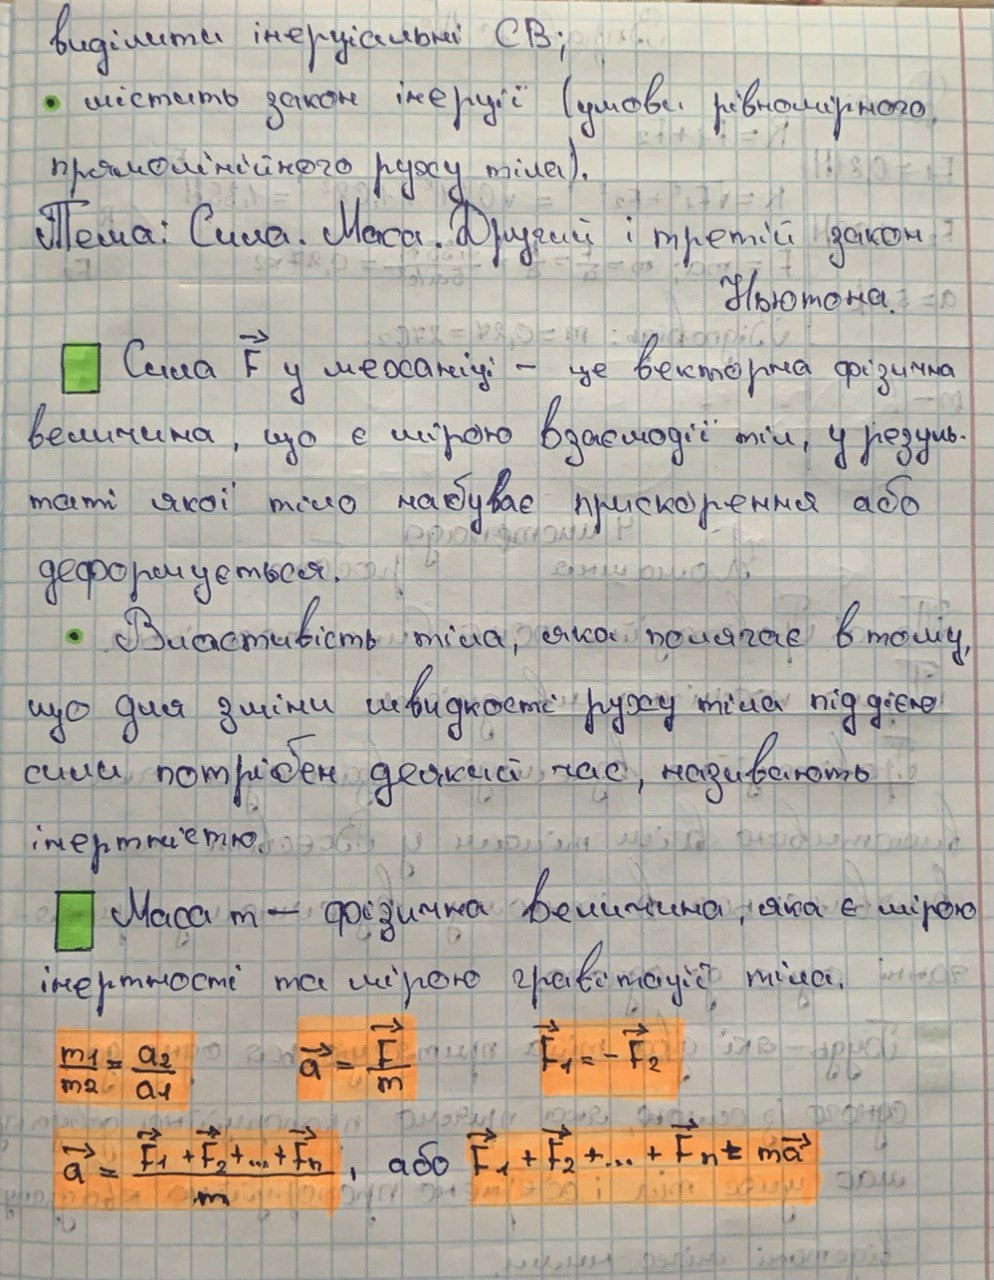 виділити інерціальні СВ;
• містить закон інерції (умови рівномірного
прямолінійного руху тіла).
Тема: Сила. Маса. Другий і третій закон
Ньютона.
Сила F⃗ у механіці – це векторна фізична
величина, що є мірою взаємодії тіл, у резуль-
таті якої тіло набуває прискорення або
деформується.
• Властивість тіла, яка полягає в тому,
що для зміни швидкості руху тіла під дією
сили потрібен деякий час, називають
інертністю.
Маса m – фізична величина, яка є мірою
інертності та мірою гравітації тіла.
m1/m2 = a2/a1    a⃗ = F⃗/m    F⃗1 = -F⃗2
a⃗ = (F⃗1 + F⃗2 + ... + F⃗n)/m, або F⃗1 + F⃗2 + ... + F⃗n = ma⃗